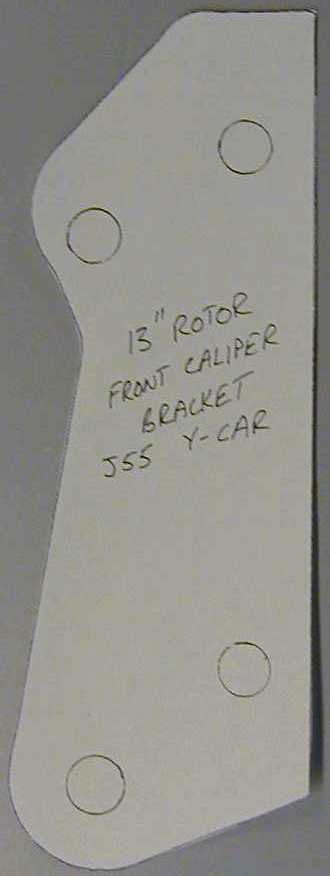 13" ROTOR
FRONT CALIPER
BRACKET
J55 Y-CAR